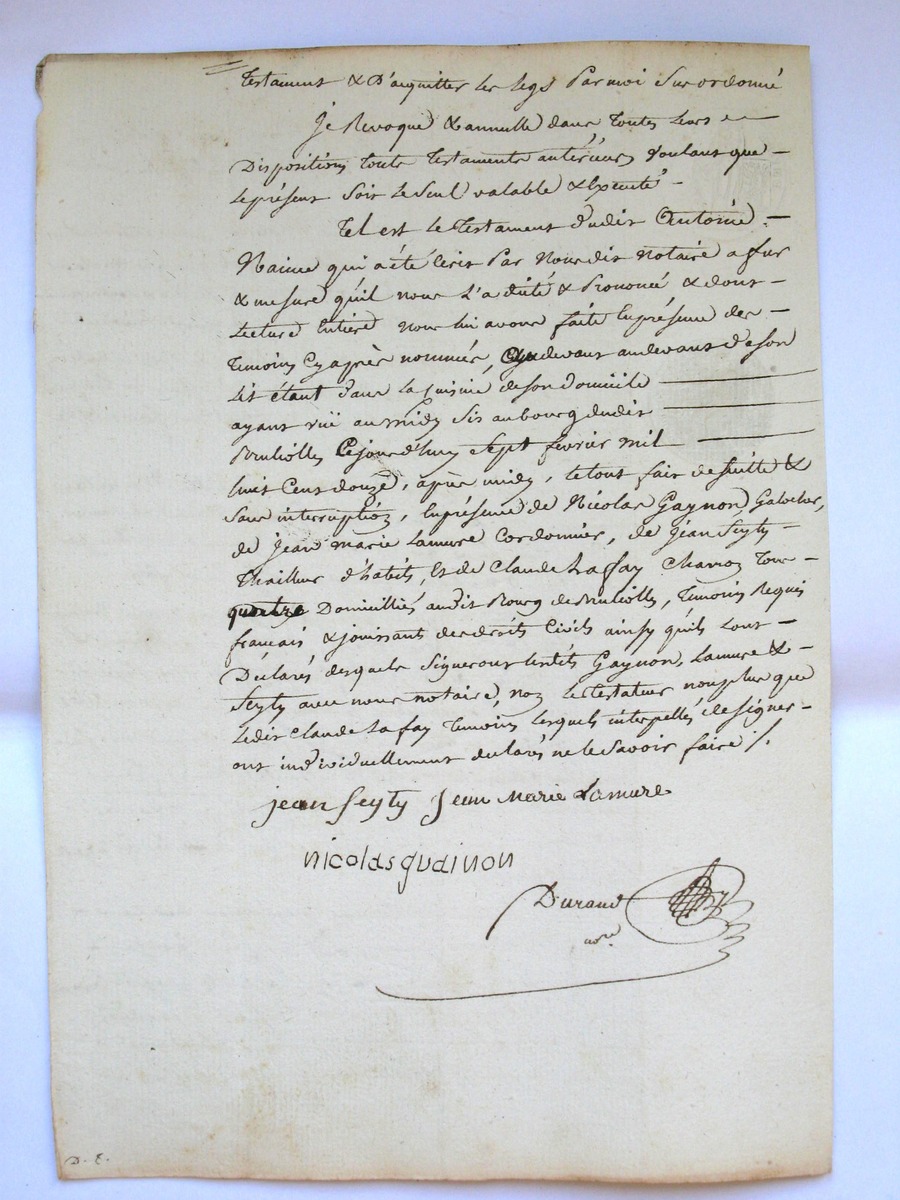 Testament & D'acquitter les legs Par moi Sus ordonné
Je Revoque & annulle dans Toutes leurs
Dispositions Touts Testaments antérieurs Voulant que
Le présent Soit Le Seul valable & Exécuté
Tel est le Testament dudit Antoine
Naime qui a été Ecrit Par Nousdit Notaire a fur
& mesure qu'il nous L'a dicté & Prononcé & dont
Lecture Entiere nous lui avons faite En présence des
Temoins Cy après nommés, audevant de son
Lit étant dans la Cuisine de son domicile
ayant vüe au midy Sis au bourg dudit
Brulioles Ce jourd'huy Sept fevrier mil
huit Cent douze, après midy, le tout fait de Suitte &
Sans interruption, En présence de Nicolas Gaynon, Galochier,
de Jean marie Lamure Cordonnier, de Jean Seyty
Thailleur d'habits, Et de Claude Lafay Tous
quatre Domiciliés audit Bourg de Brulioles, Temoins Requis
français & jouissant des droits Civils ainsy qu'ils L'ont
Déclarés desquels Signeront lesdits Gaynon, Lamure &
Seyty avec nous notaire, non Le testateur non plus que
Ledit Claude Lafay Temoins Lesquels interpellés de Signer
ont individuellement déclarés ne le Savoir faire ./.
jean Seyty Jean Marie Lamure
nicolas guainon
Durand
nore
D. E.